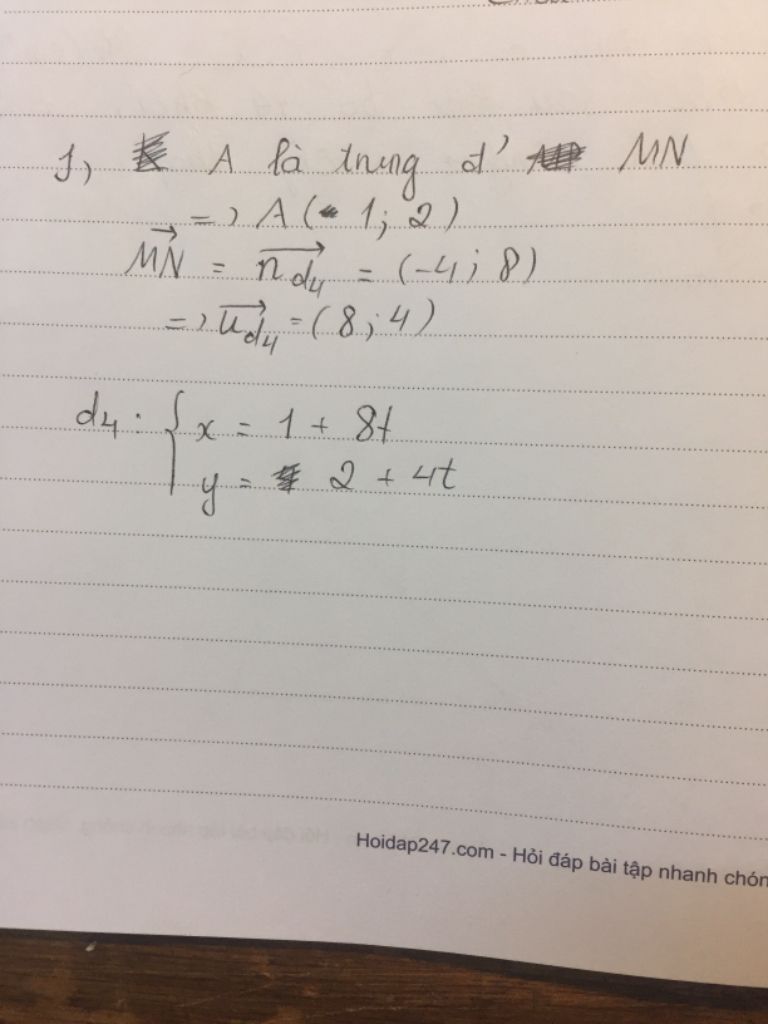 1, A là trung đ' MN
=> A(1; 2)
MN = n d4 = (-4; 8)
=> u d4 = (8; 4)
d4: { x = 1 + 8t
y = 2 + 4t
Hoidap247.com - Hỏi đáp bài tập nhanh chón